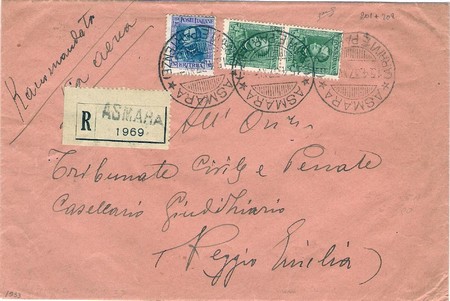 Raccomandato
aerea
201+209
POSTE ITALIANE
ERITREA
ASMARA
ASMARA
ASMARA
R ASMARA
1969
All'On.
Tribunale Civile e Penale
Casellario Giudiziario
Reggio Emilia